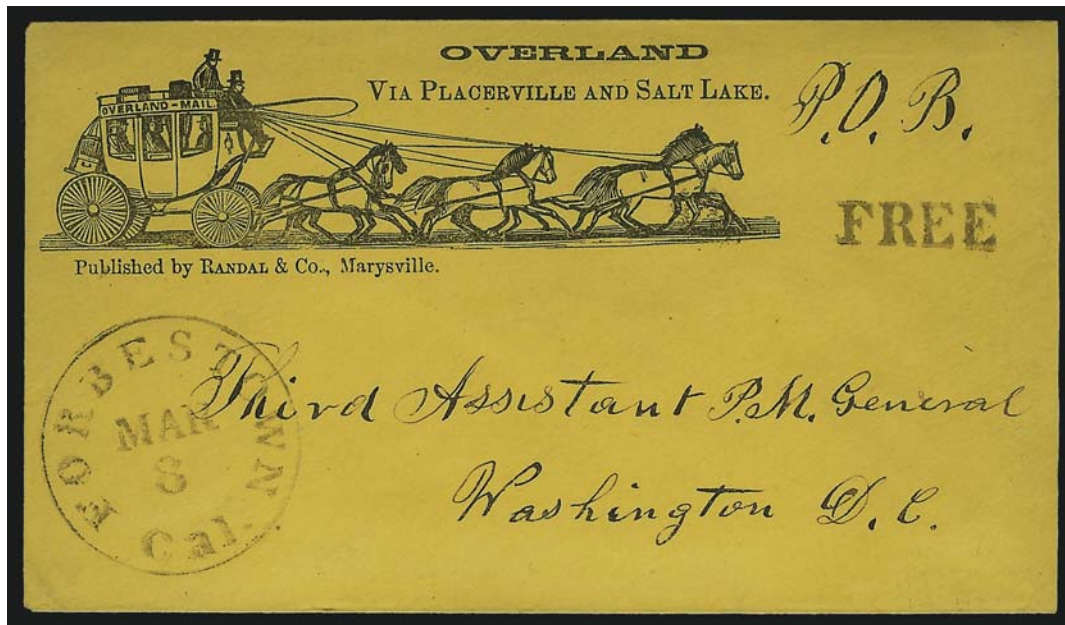 OVERLAND
VIA PLACERVILLE AND SALT LAKE.
P.O.B.
OVERLAND-MAIL
FREE
Published by RANDAL & Co., Marysville.
FORBESTOWN
MAR
8
Cal.
Third Assistant P.M. General
Washington D.C.